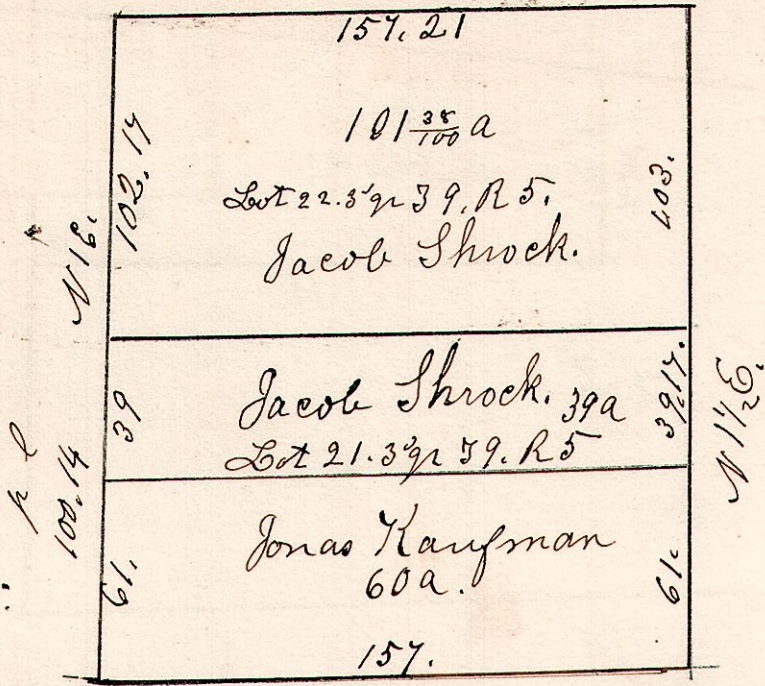 157.21
101 38/100 a
Lot 22. 3 qr 39. R 5.
Jacob Shrock.
102.17
N 1 E.
403.
Jacob Shrock. 39a
Lot 21. 3 qr 39. R 5
39
39.17.
N 1½ E.
100.14
p l
Jonas Kaufman
60 a.
61.
61.
157.